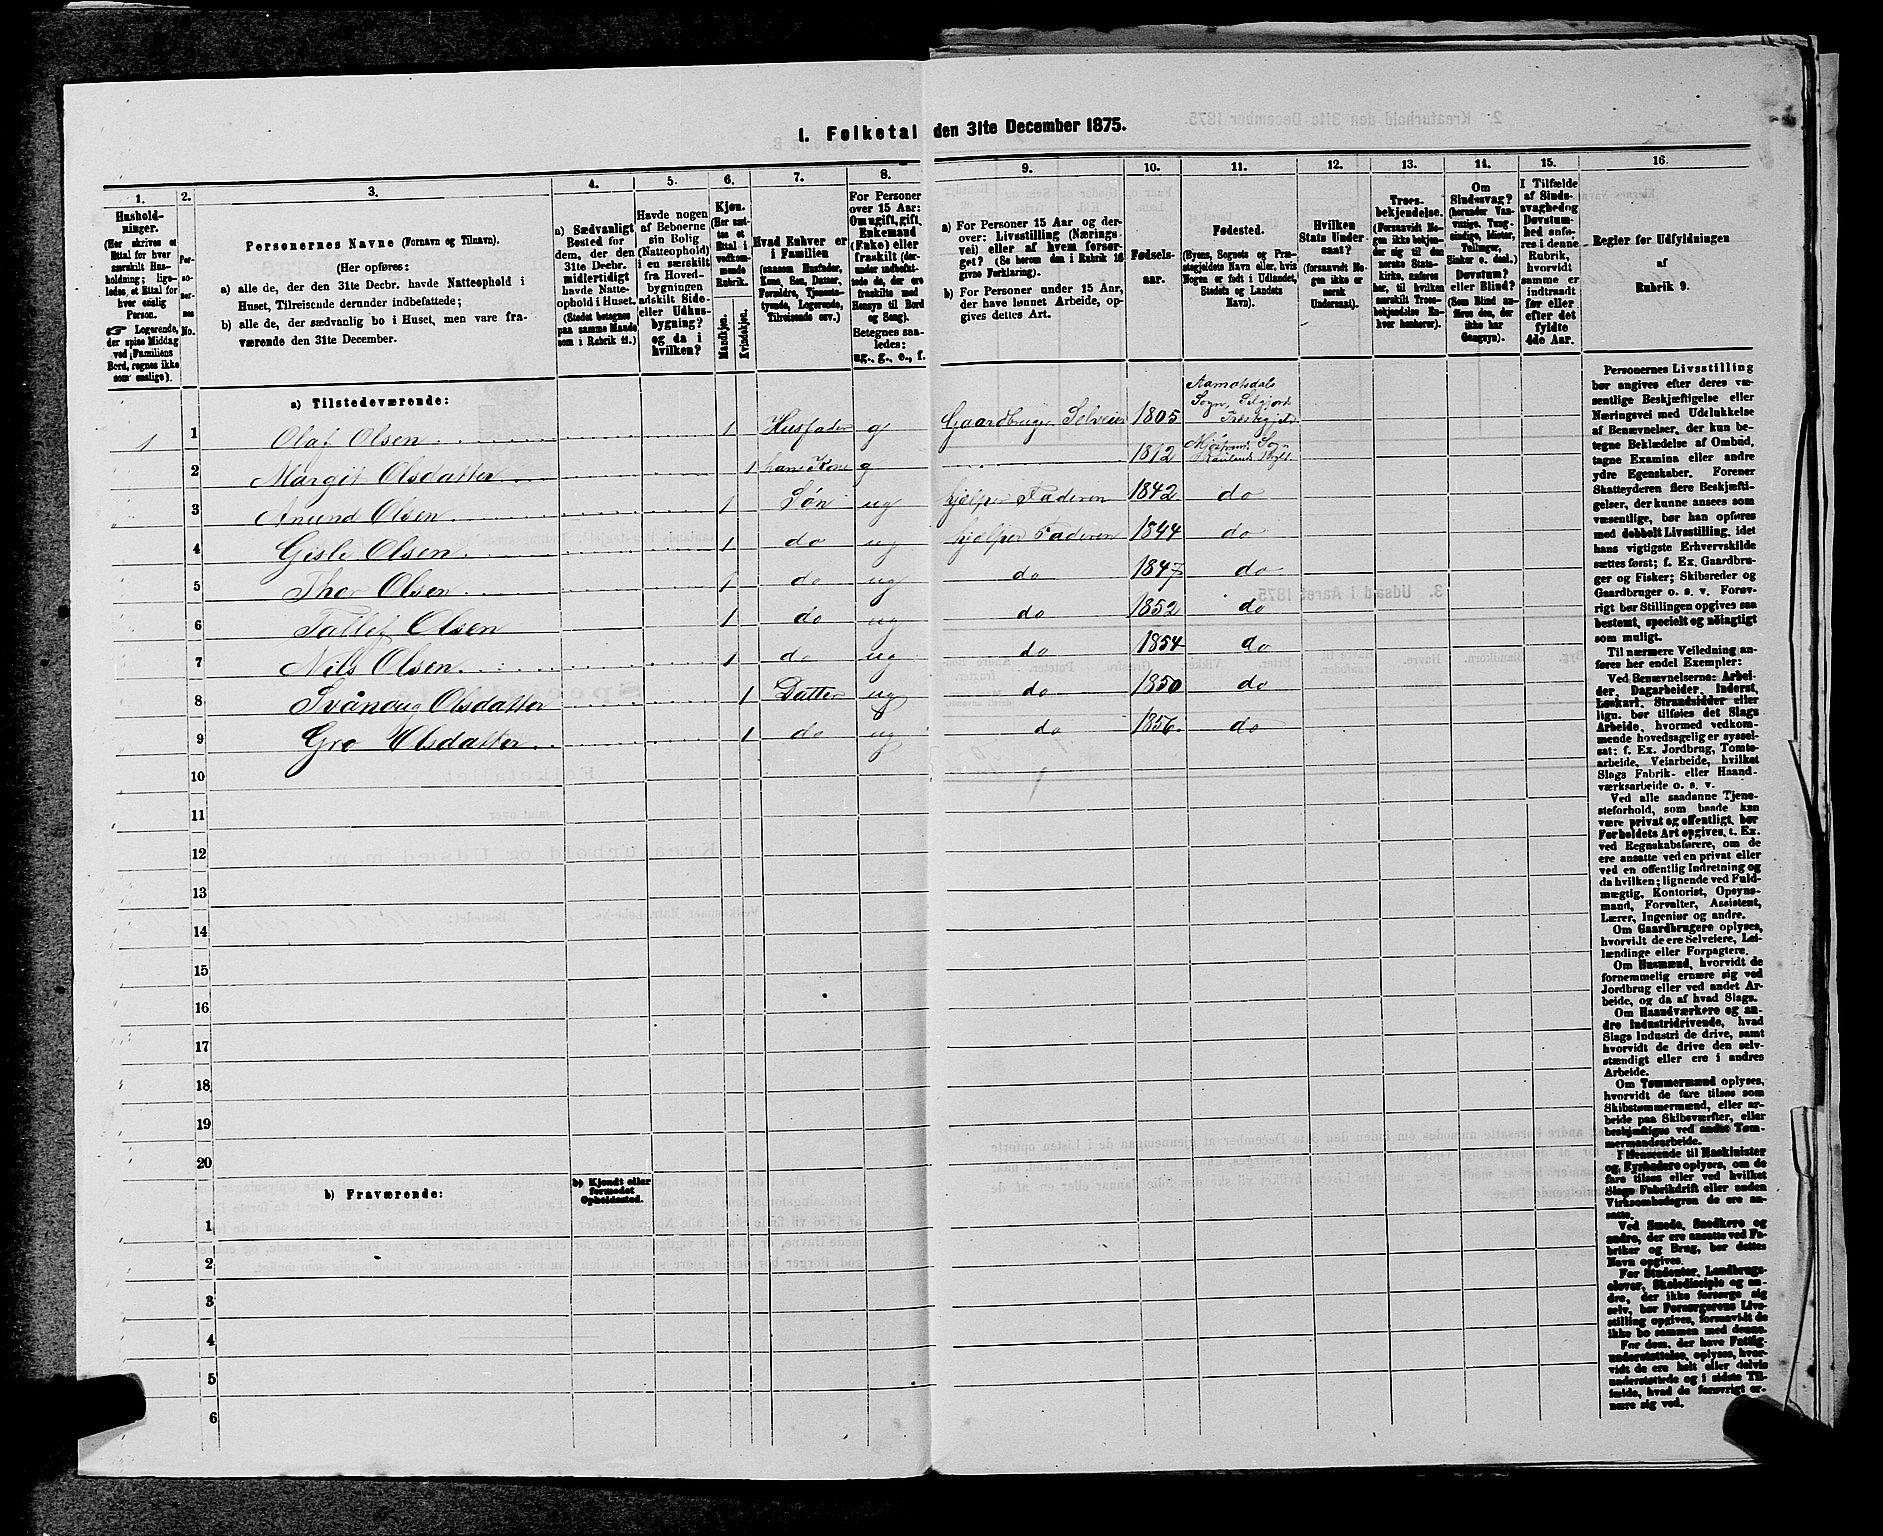 1. Folketal den 31te December 1875.
1.
2.
3.
4.
5.
6.
7.
8.
9.
10.
11.
12.
13.
14.
15.
16.
Hushold-
ninger.
(Her skrives et
Ettal for hver
særskilt Hus-
holdning; lige-
ledes, et Ettal for
hver enslig
Person.
Logerende,
der spise Middag
ved Familiens
Bord, regnes ikke
som enslige).
Per-
so-
ner-
nes
No.
Personernes Navne (Fornavn og Tilnavn).
(Her opføres:
a) alle de, der den 31te Decbr. havde Natteophold i
Huset, Tilreisende derunder indbefattede;
b) alle de, der sædvanlig bo i Huset, men vare fra-
værende den 31te December.
a) Sædvanligt
Bosted for
dem, der den
31te Decbr.
midlertidigt
havde Natte-
ophold i Huset.
(Stedet betegnes
paa samme Maade
som i Rubrik 11.)
Havde nogen
af Beboerne
sin Bolig
(Natteophold)
i en særskilt
fra Hoved-
bygningen
adskilt Side-
eller Udhus-
bygning?
og da i
hvilken?
Kjøn.
(Her sæt-
tes et
Ettal i
vedkom-
mende
Rubrik.
Mandkjøn.
Kvindekjøn.
Hvad Enhver er
i Familien
(saasom Husfader,
Kone, Søn, Datter,
Forældre, Tjeneste-
tyende, Logerende,
Tilreisende osv.)
For Personer
over 15 Aar:
Om ugift, gift,
Enkemand
(Enke) eller
fraskilt (der-
under indbefat-
tede de, der ere
fraskilte med
Hensyn til Bord
og Seng).
Betegnes saa-
ledes:
ug., g., e., f.
a) For Personer 15 Aar og der-
over: Livsstilling (Nærings-
vei) eller af hvem forsør-
get? (Se herom den i Rubrik 16
givne Forklaring).
b) For Personer under 15 Aar,
der have lønnet Arbeide, op-
gives dettes Art.
Fødsels-
aar.
Fødested.
(Byens, Sognets og Præ-
stegjeldets Navn eller, hvis
Nogen er født i Udlandet,
Stedets og Landets
Navn).
Hvilken
Stats Under-
saat?
(forsaavidt No-
gen ikke er
norsk
Undersaat).
Troes-
bekjendelse.
(Forsaavidt No-
gen ikke bekjen-
der sig til den
norske Stats-
kirke, anføres
her, til hvilken
særskilt Troes-
bekjendelse En-
hver henhører).
Om
Sindssvag?
(herunder Van-
vittige, Tung-
sindige, Idioter,
Tullinger,
Sinker o. desl.)
Døvstum?
eller Blind?
(Som Blind an-
føres den, der
ikke har
Gangsyn).
I Tilfælde
af Sinds-
svaghed og
Døvstum-
hed anfø-
res i denne
Rubrik,
hvorvidt
samme er
indtraadt
før eller
efter det
fyldte
4de Aar.
Regler for Udfyldningen
af
Rubrik 9.
a) Tilstedeværende:
1 1 Olaf Olsen 1 Husfader g Gaardbruger Selveier 1805 Aamotsdals Sogn,
2 Margit Olsdatter 1 hans Kone g 1812
3 Anund Olsen 1 Søn ug hjelper Faderen 1842 do
4 Gisle Olsen 1 do ug hjelper Faderen 1844 do
5 Thor Olsen 1 do ug do 1847 do
6 Tallef Olsen 1 do ug do 1852 do
7 Nils Olsen 1 do ug do 1854 do
8 Svånaug Olsdatter 1 Datter ug do 1850 do
9 Gro Olsdatter 1 do ug do 1856 do
10
11
12
13
14
15
16
17
18
19
20
b) Fraværende:
b) Kjendt eller
formodet
Opholdssted.
1
2
3
4
5
6
Personernes Livsstilling
bør angives efter deres væ-
sentlige Beskjæftigelse eller
Næringsvei med Udelukkelse
af Benævnelser, der kun be-
tegne Beklædelse af Ombud,
tagne Examina eller andre
ydre Egenskaber. Forener
Skatteyderen flere Beskjæfti-
gelser, der kunne ansees som
væsentlige, bør han opføres
med dobbelt Livsstilling, idet
hans vigtigste Erhvervskilde
sættes først; f. Ex. Gaardbru-
ger og Fisker; Skibsreder og
Gaardbruger o. s. v. Forøv-
rigt bør Stillingen opgives saa
bestemt, specielt og nøiagtigt
som muligt.
Til nærmere Veiledning an-
føres her endel Exempler:
Ved Benævnelserne: Arbei-
der, Dagarbeider, Inderst,
Løskarl, Strandsidder eller
lign. bør tilføies det Slags
Arbeide, hvormed vedkom-
mende hovedsagelig er syssel-
sat; f. Ex. Jordbrug, Tomte-
arbeide, Veiarbeide, hvilket
Slags Fabrik- eller Haand-
værksarbeide o. s. v.
Ved alle saadanne Tjene-
steforhold, som baade kan
være privat og offentligt, bør
Forholdets Art opgives, t. Ex.
ved Regnskabsførere, om de
ere ansatte ved en privat eller
ved en offentlig Indretning og
da hvilken; lignende ved Fuld-
mægtig, Kontorist, Opsyns-
mand, Forvalter, Assistent,
Lærer, Ingeniør og andre.
Om Gaardbrugere oplyses,
hvorvidt de ere Selveiere, Lei-
lændinge eller Forpagtere.
Om Husmænd, hvorvidt de
fornemmelig ernære sig ved
Jordbrug eller ved andet Ar-
beide, og da af hvad Slags.
Om Haandværkere og an-
dre Industridrivende, hvad
Slags Industri de drive, samt
hvorvidt de drive den selv-
stændigt eller ere i andres
Arbeide.
Om Tømmermænd oplyses,
hvorvidt de fare tilsøs som
Skibstømmermænd, eller ar-
beide paa Skibsværfter, eller
beskjæftiges ved andet Tøm-
mermandsarbeide.
Henseende til Maskinister
og Fyrbødere oplyses, om de
fare tilsøs eller ved hvilket
Slags Fabrikdrift eller anden
Virksomhedsgren de ere an-
satte.
Ved Smede, Snedkere og
andre, der ere ansatte ved Fa-
briker og Brug, bør dettes
Navn opgives.
For Studenter, Landbrugs-
elever, Skoledisciple og an-
dre, der ikke forsørge sig
selv, bør Forsørgerens Livs-
stilling opgives, forsaavidt de
ikke bo sammen med denne.
For dem, der have Fattig-
understøttelse, oplyses, hvor-
vidt de ere helt eller delvis
understøttede og i sidste Til-
fælde, hvad de forøvrigt er-
nære sig ved.